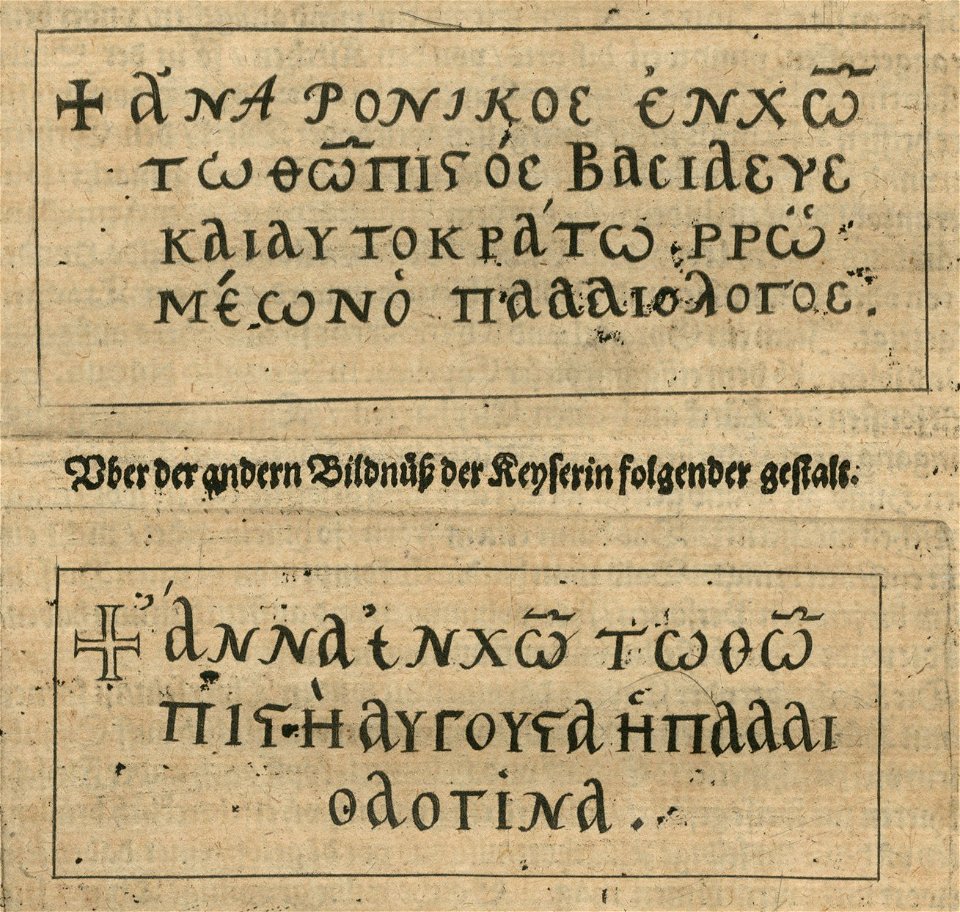 ✠ ἀΝΑΡΟΝΙΚΟϹ ἐΝΧῶ
ΤωθῶΠΙϛόϲ ΒαϲΙλεΥϲ
ΚαΙαΥΤΟΚΡάΤω ΡΡῶ
ΜέωΝὁ ΠαλαΙΟλΟΓΟϲ.
Vber der andern Bildnüß der Keyserin folgender gestalt:
✠ ἄΝΝα ἐΝΧῶ Τωθῶ
ΠΙϛὴ αΥΓΟΥϛα ἡΠαλαΙ
θλΟΓίΝα.